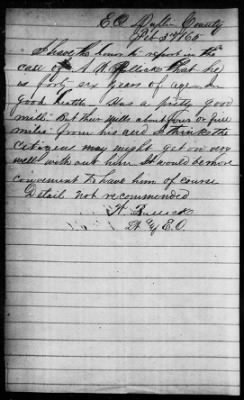 E.O. Dublin County
Feb 3rd /65
I have the honor to report in the
case of A. H. that he
is forty six years of age in
good health. Has a pretty good
mill. But three mills about four or five
miles from his and I think the
citizens may might get on very
well with out him It would be more
convenient to have him of course
Detail not recommended
Lt. & E.O.